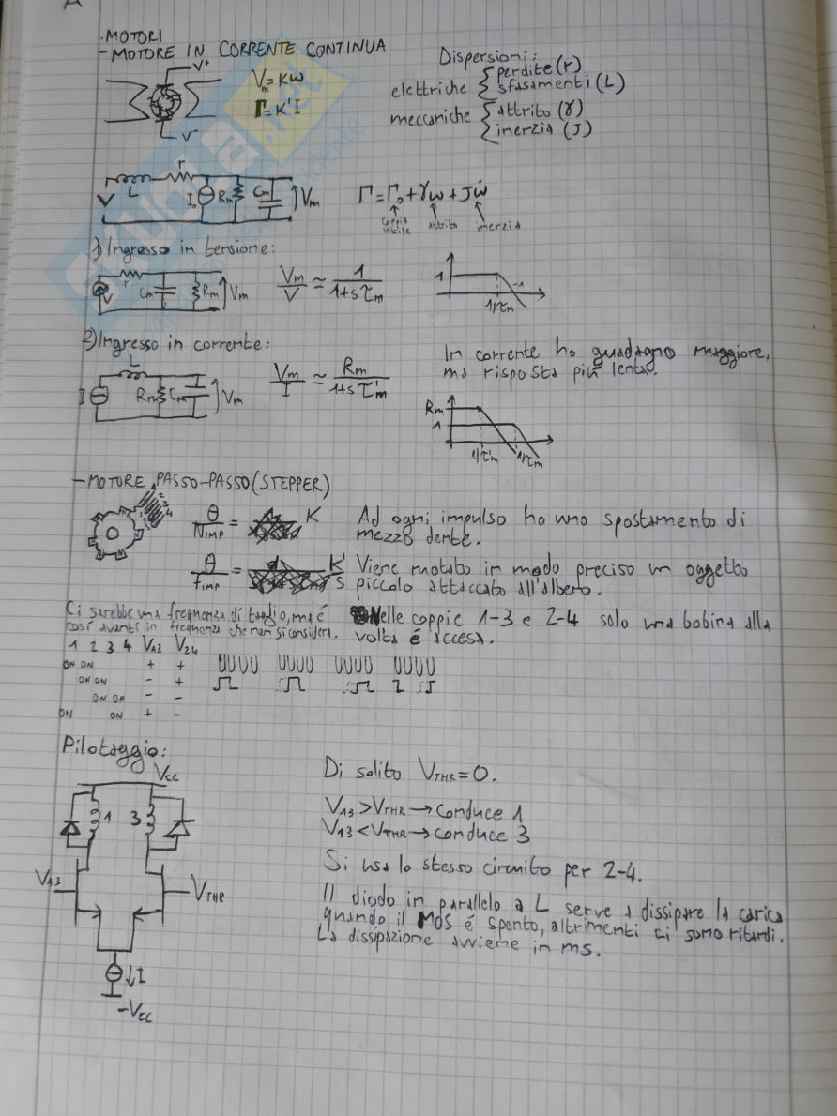 • MOTORI
- MOTORE IN CORRENTE CONTINUA
V+
V-
Vm = Kω
Γ = K'I
Dispersioni:
elettriche { perdite (r)
sfasamenti (L)
meccaniche { attrito (γ)
inerzia (J)
V L r I Rm Cm Vm
Γ = Γo + γω + Jω̇
coppia utile attrito inerzia
1) Ingresso in tensione:
V r Cm Rm Vm
Vm/V ≃ 1/(1+sτm)
1 -1 1/τm
2) Ingresso in corrente:
I L Rm Cm Vm
Vm/I ≃ Rm/(1+sτ'm)
In corrente ho guadagno maggiore,
ma risposta più lenta.
Rm
1
1/τ'm 1/τm
- MOTORE PASSO-PASSO (STEPPER)
1 2 3 4
θ/NIMP = K
Ad ogni impulso ho uno spostamento di
mezzo dente.
θ/FIMP = K'/s
Viene ruotato in modo preciso un oggetto
piccolo attaccato all'albero.
Ci sarebbe una frequenza di taglio, ma è
così avanti in frequenza che non si consideri.
Nelle coppie 1-3 e 2-4 solo una bobina alla
volta é accesa.
1 2 3 4 V13 V24
ON ON + +
ON ON - +
ON ON - -
ON ON + -
Pilotaggio:
Vcc
1 3
V13
VTHR
↓I
-Vcc
Di solito VTHR = 0.
V13 > VTHR → Conduce 1
V13 < VTHR → conduce 3
Si usa lo stesso circuito per 2-4.
Il diodo in parallelo a L serve a dissipare la carica
quando il MOS é spento, altrimenti ci sono ritardi.
La dissipazione avviene in ms.